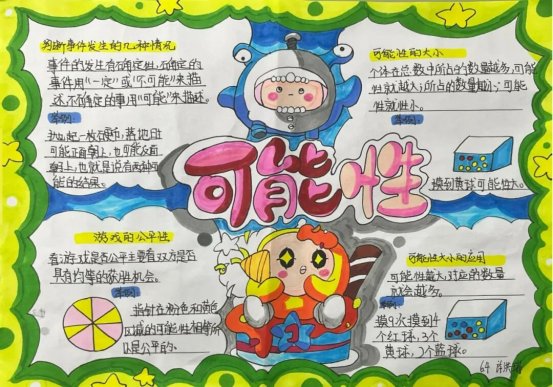 判断事件发生的几种情况
事件的发生有确定性,不确定的
事件用“一定”或“不可能”来描
述,不确定的事用“可能”来描述。
举例:
抛起一枚硬币,落地后
可能正面朝上,也可能反面
朝上,也就是说有两种可
能的结果。
可能性的大小
个体在总数中所占的数量越多,可能
性就越大;所占的数量越小;可能
性就越小。
举例:
摸到黄球可能性大。
可能性
游戏的公平性
看游戏是否公平主要看双方是否
具有均等的获胜机会。
举例:
指针在粉色和黄色
区域的可能性相等所
以是公平的。
可能性大小的应用
可能性越大,对应的数量
就会越多。
举例:
摸9次摸到4
个红球,3个
黄球,2个蓝球。